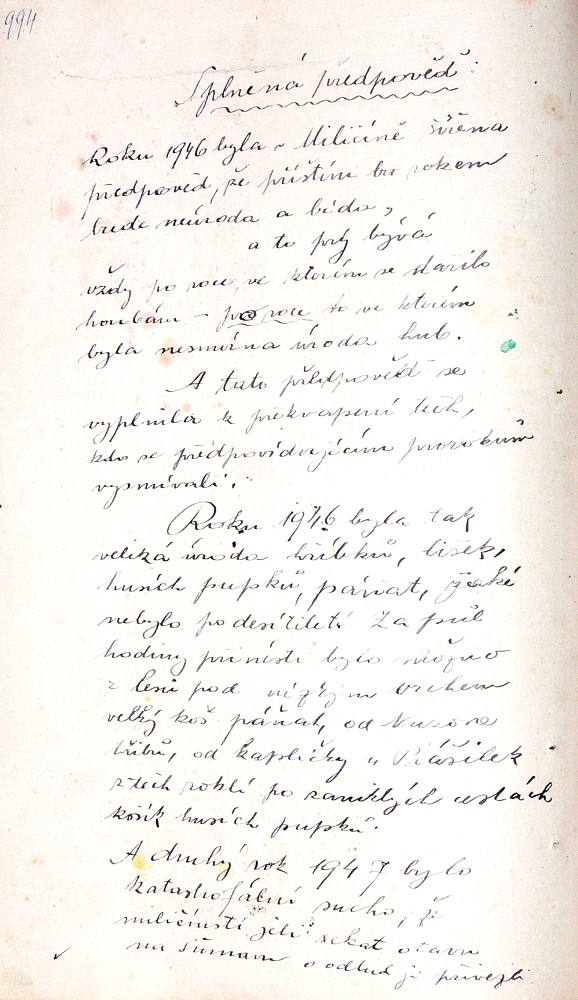 994
Splněná předpověď:
Roku 1946 byla v Miličíně šířena
předpověd, že příštím bu rokem
bude neúroda a bída,
a to prý bývá
vždy po roce, ve kterém se dařilo
houbám – po roce to ve kterém
byla nesmírna úroda hub.
A tato předpověď se
vyplnila k překvapení těch,
kdo se předpovídajícím prorokům
vysmívali.
Roku 1946 byla tak
veliká úroda hříbků, lišek,
husích pupků, páňat, jaké
nebylo po desítiletí Za půl
hodiny přinésti bylo možno
z lesa pod nízkým vrchem
velký koš páňat, od
hřibů, od kapličky u
z těch roklí po zaniklých cestách
košík husích pupků.
A druhý rok 1947 bylo
katastrofální sucho, že
miličínstí jeli sekat otavu
na Šumavu a odtud ji přivezli